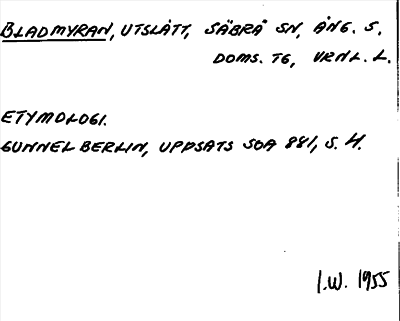 BLADMYRAN, UTSLÅTT, SÄBRÅ SN, ÅNG. S.
DOMS. TG, VRNL. L.
ETYMOLOGI.
GUNNEL BERLIN, UPPSATS SOA 881, S. 4.
I.W. 1955